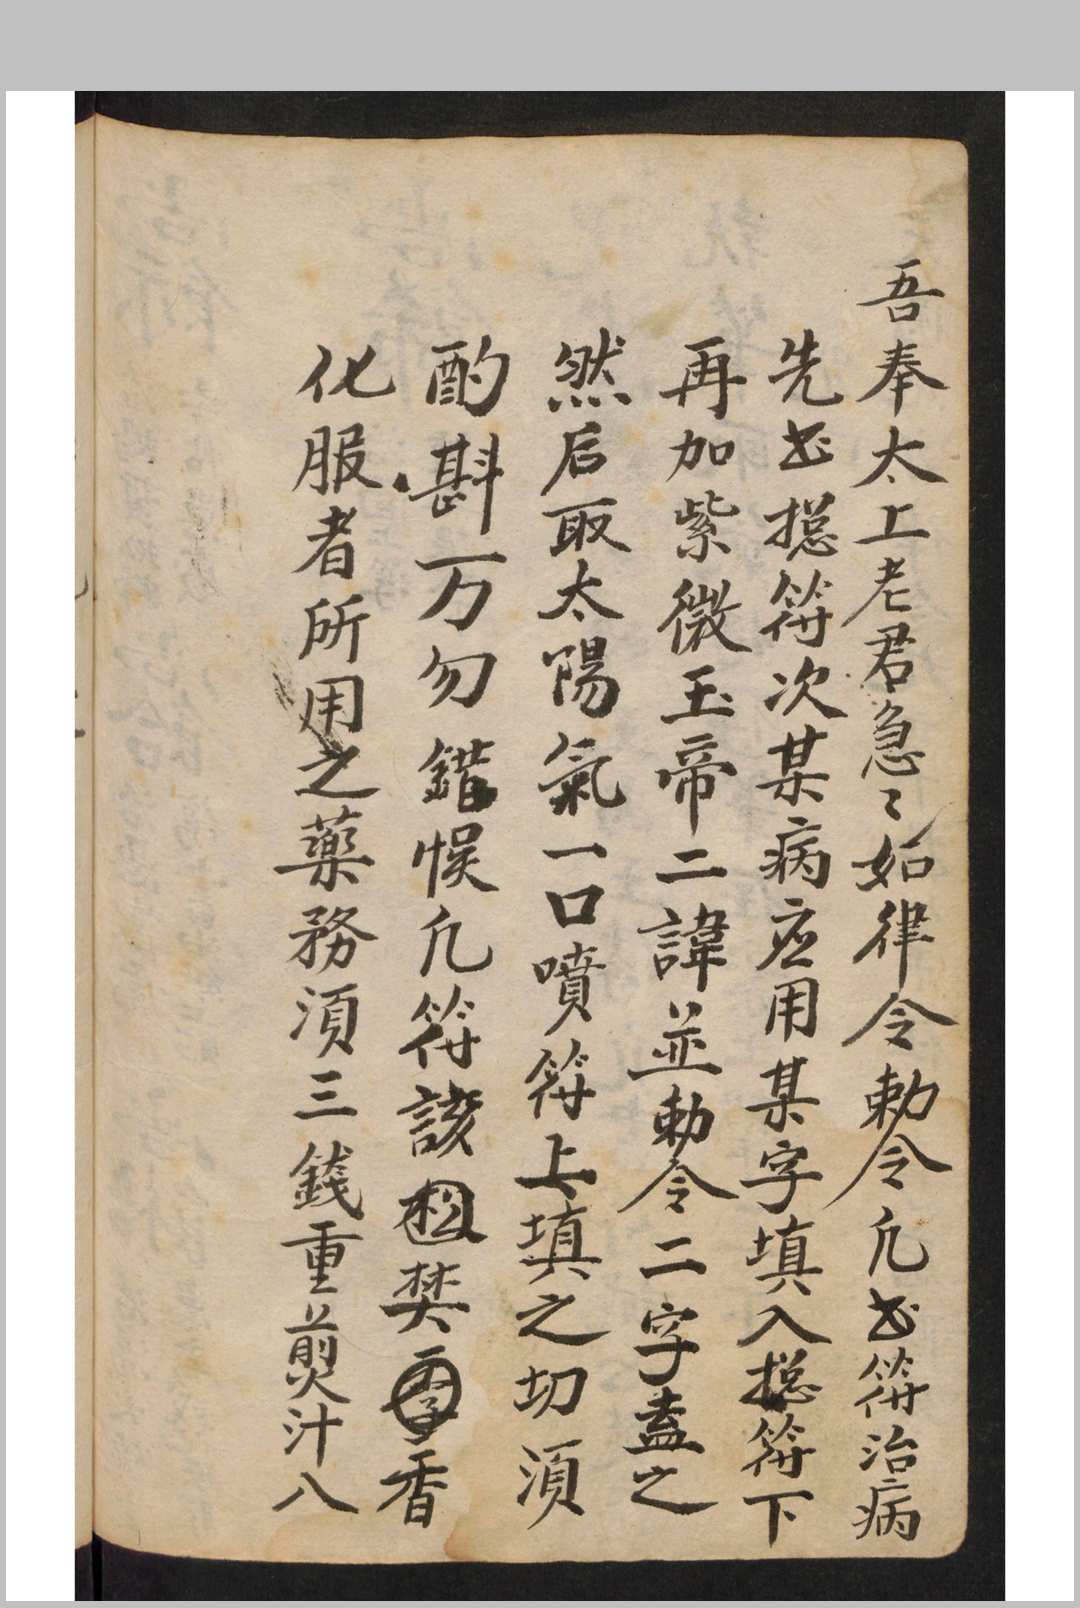 吾奉太上老君急〻如律令勅令凢书符治病
先书摠符次某病应用某字填入摠符下
再加紫微玉帝二諱並勅令二字盖之
然后取太陽氣一口噴符上填之切須
酌斟一万勿錯悮凢符該焚香
化服者所用之藥務須三錢重煎汁八